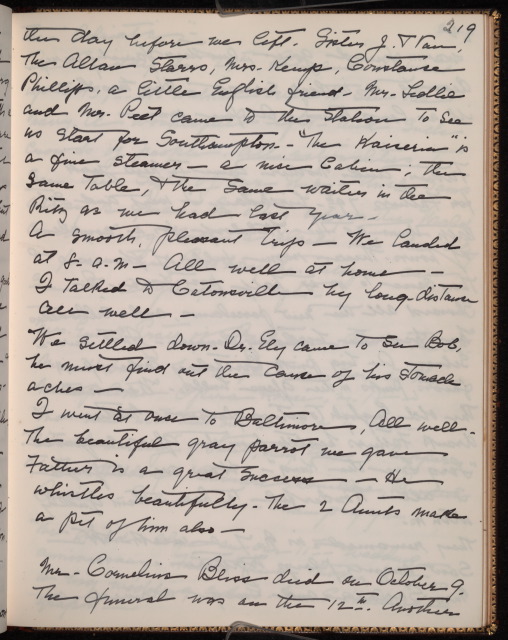 219
the day before we left. Sister J. & Tom,
the Allan Starrs, Mrs. Kemp, Constance
Phillips, a little English friend - Mr. Leslie
and Mrs. Peet came to the Station to see
us start for Southampton - "The Kaiserin" is
a fine steamer - a nice Cabin; the
same table, & the same waiters in the
Ritz as we had last year -
A smooth, pleasant trip - We landed
at 8- a-m- All well at home -
I talked to Catonsville by long-distance
all well -
We settled down - Dr. Ely came to see Bob,
he must find out the cause of his stomach
aches -
I went at once to Baltimore, all well -
The beautiful gray parrot we gave
Father is a great success - He
whistles beautifully - The 2 Aunts make
a pet of him also -
Mr - Cornelius Bliss died on October 9.
The funeral was on the 12th. Another